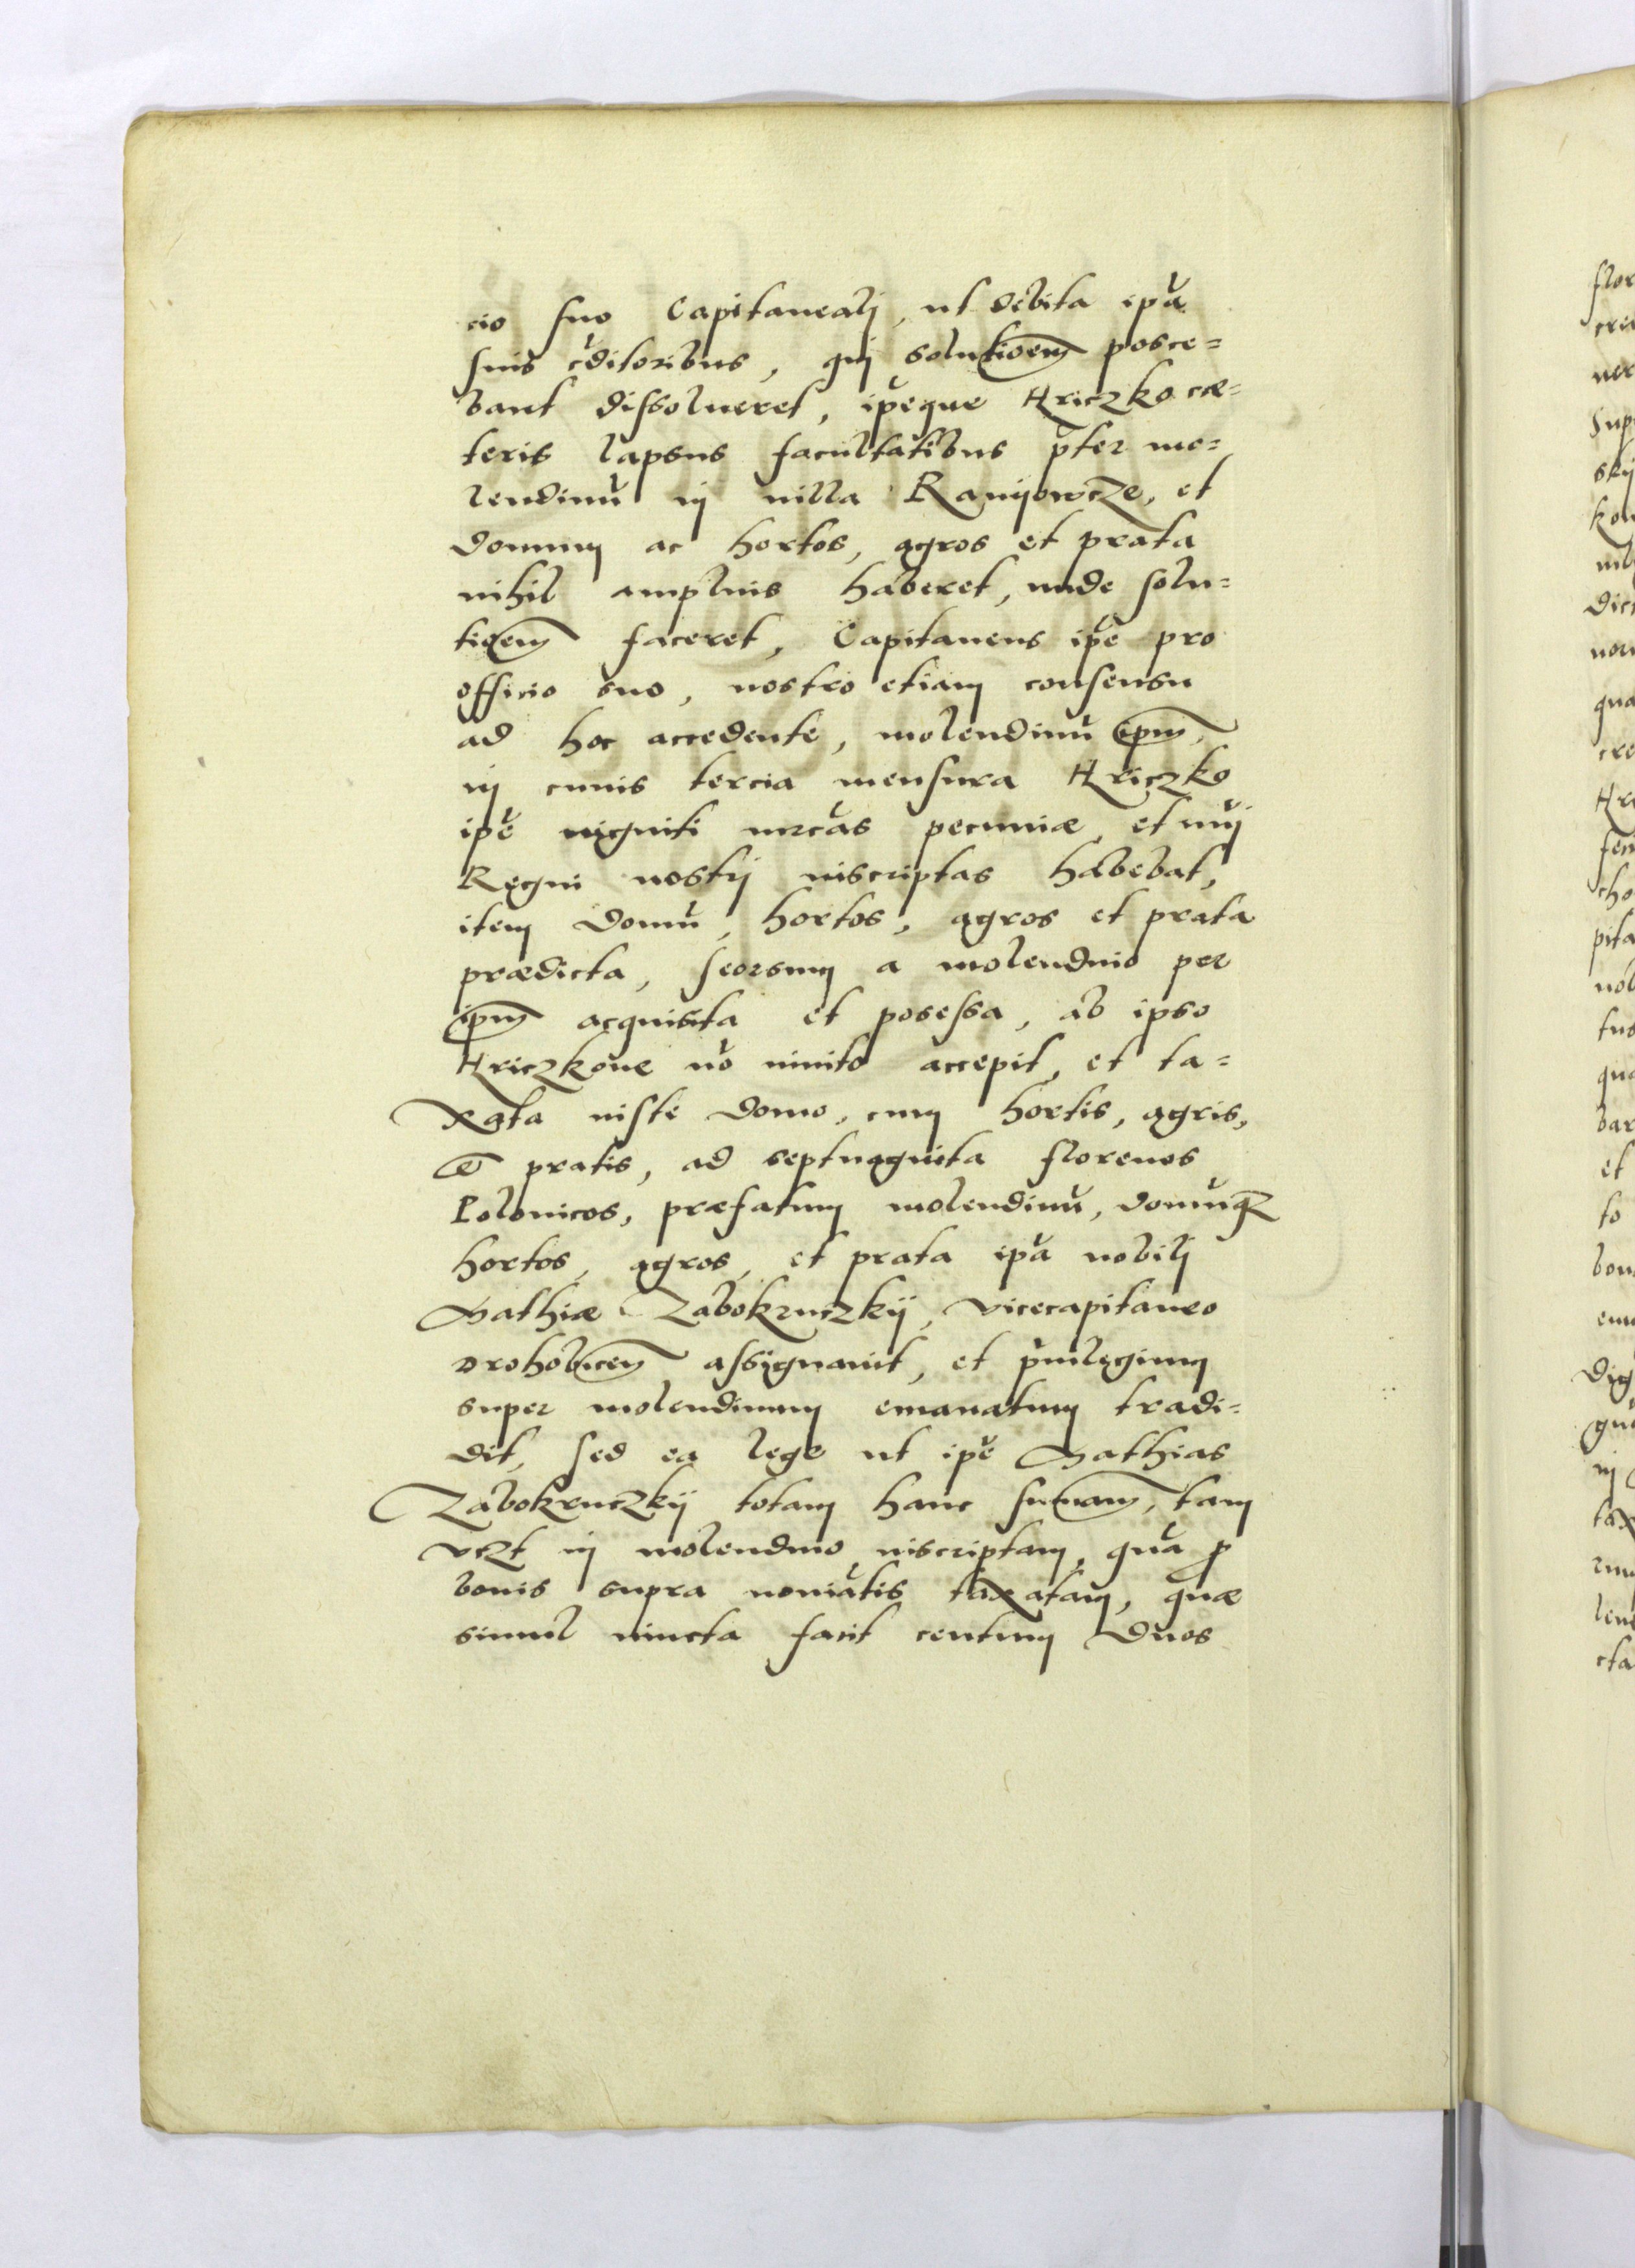 cio suo Capitaneali, ut debita ip̃a
suis c̃ditoribus, qui solutioẽm posce=
bant dissolueret, ip̃eque Hriczko cæ=
teris lapsus facultatibus p̃ter mo=
lendinũ in uilla Ranijowcze, et
domum ac hortos, agros et prata
nihil amplius haberet, unde solu=
tioẽm faceret, Capitaneus ip̃e pro
officio suo, nostro etiam consensu
ad hoc accedente, molendinũ ip̃m,
in cuius tercia mensura Hriczko
ip̃e uiginti mrcas pecuniæ, et nũi
Regni nostri inscriptas habebat,
item domũ, hortos, agros et prata
prædicta, seorsum a molendino per
ip̃m acquisita et posessa, ab ipso
Hriczkone nõ inuito accepit, et ta=
xata iuste domo, cum hortis, agris,
et pratis, ad septuaginta florenos
Polonicos, præfatum molendinũ, domũq3
hortos, agros, et prata ip̃a nobili
Mathiæ Zabokruczkij, vicecapitaneo
drohobicen̄ assignauit, et p̃uilegium
super molendinum emanatum tradi=
dit, sed ea lege ut ip̃e Mathias
Zabokruczkij totam hanc sum̃am, tam
vz̃t in molendino inscriptam, quã ꝓ
bonis supra noniãtis taxatam, quæ
simul iuncta facit centum duos